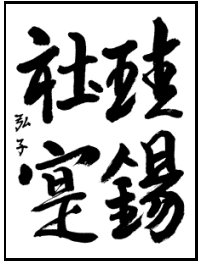 珪錫
社寔
弘子